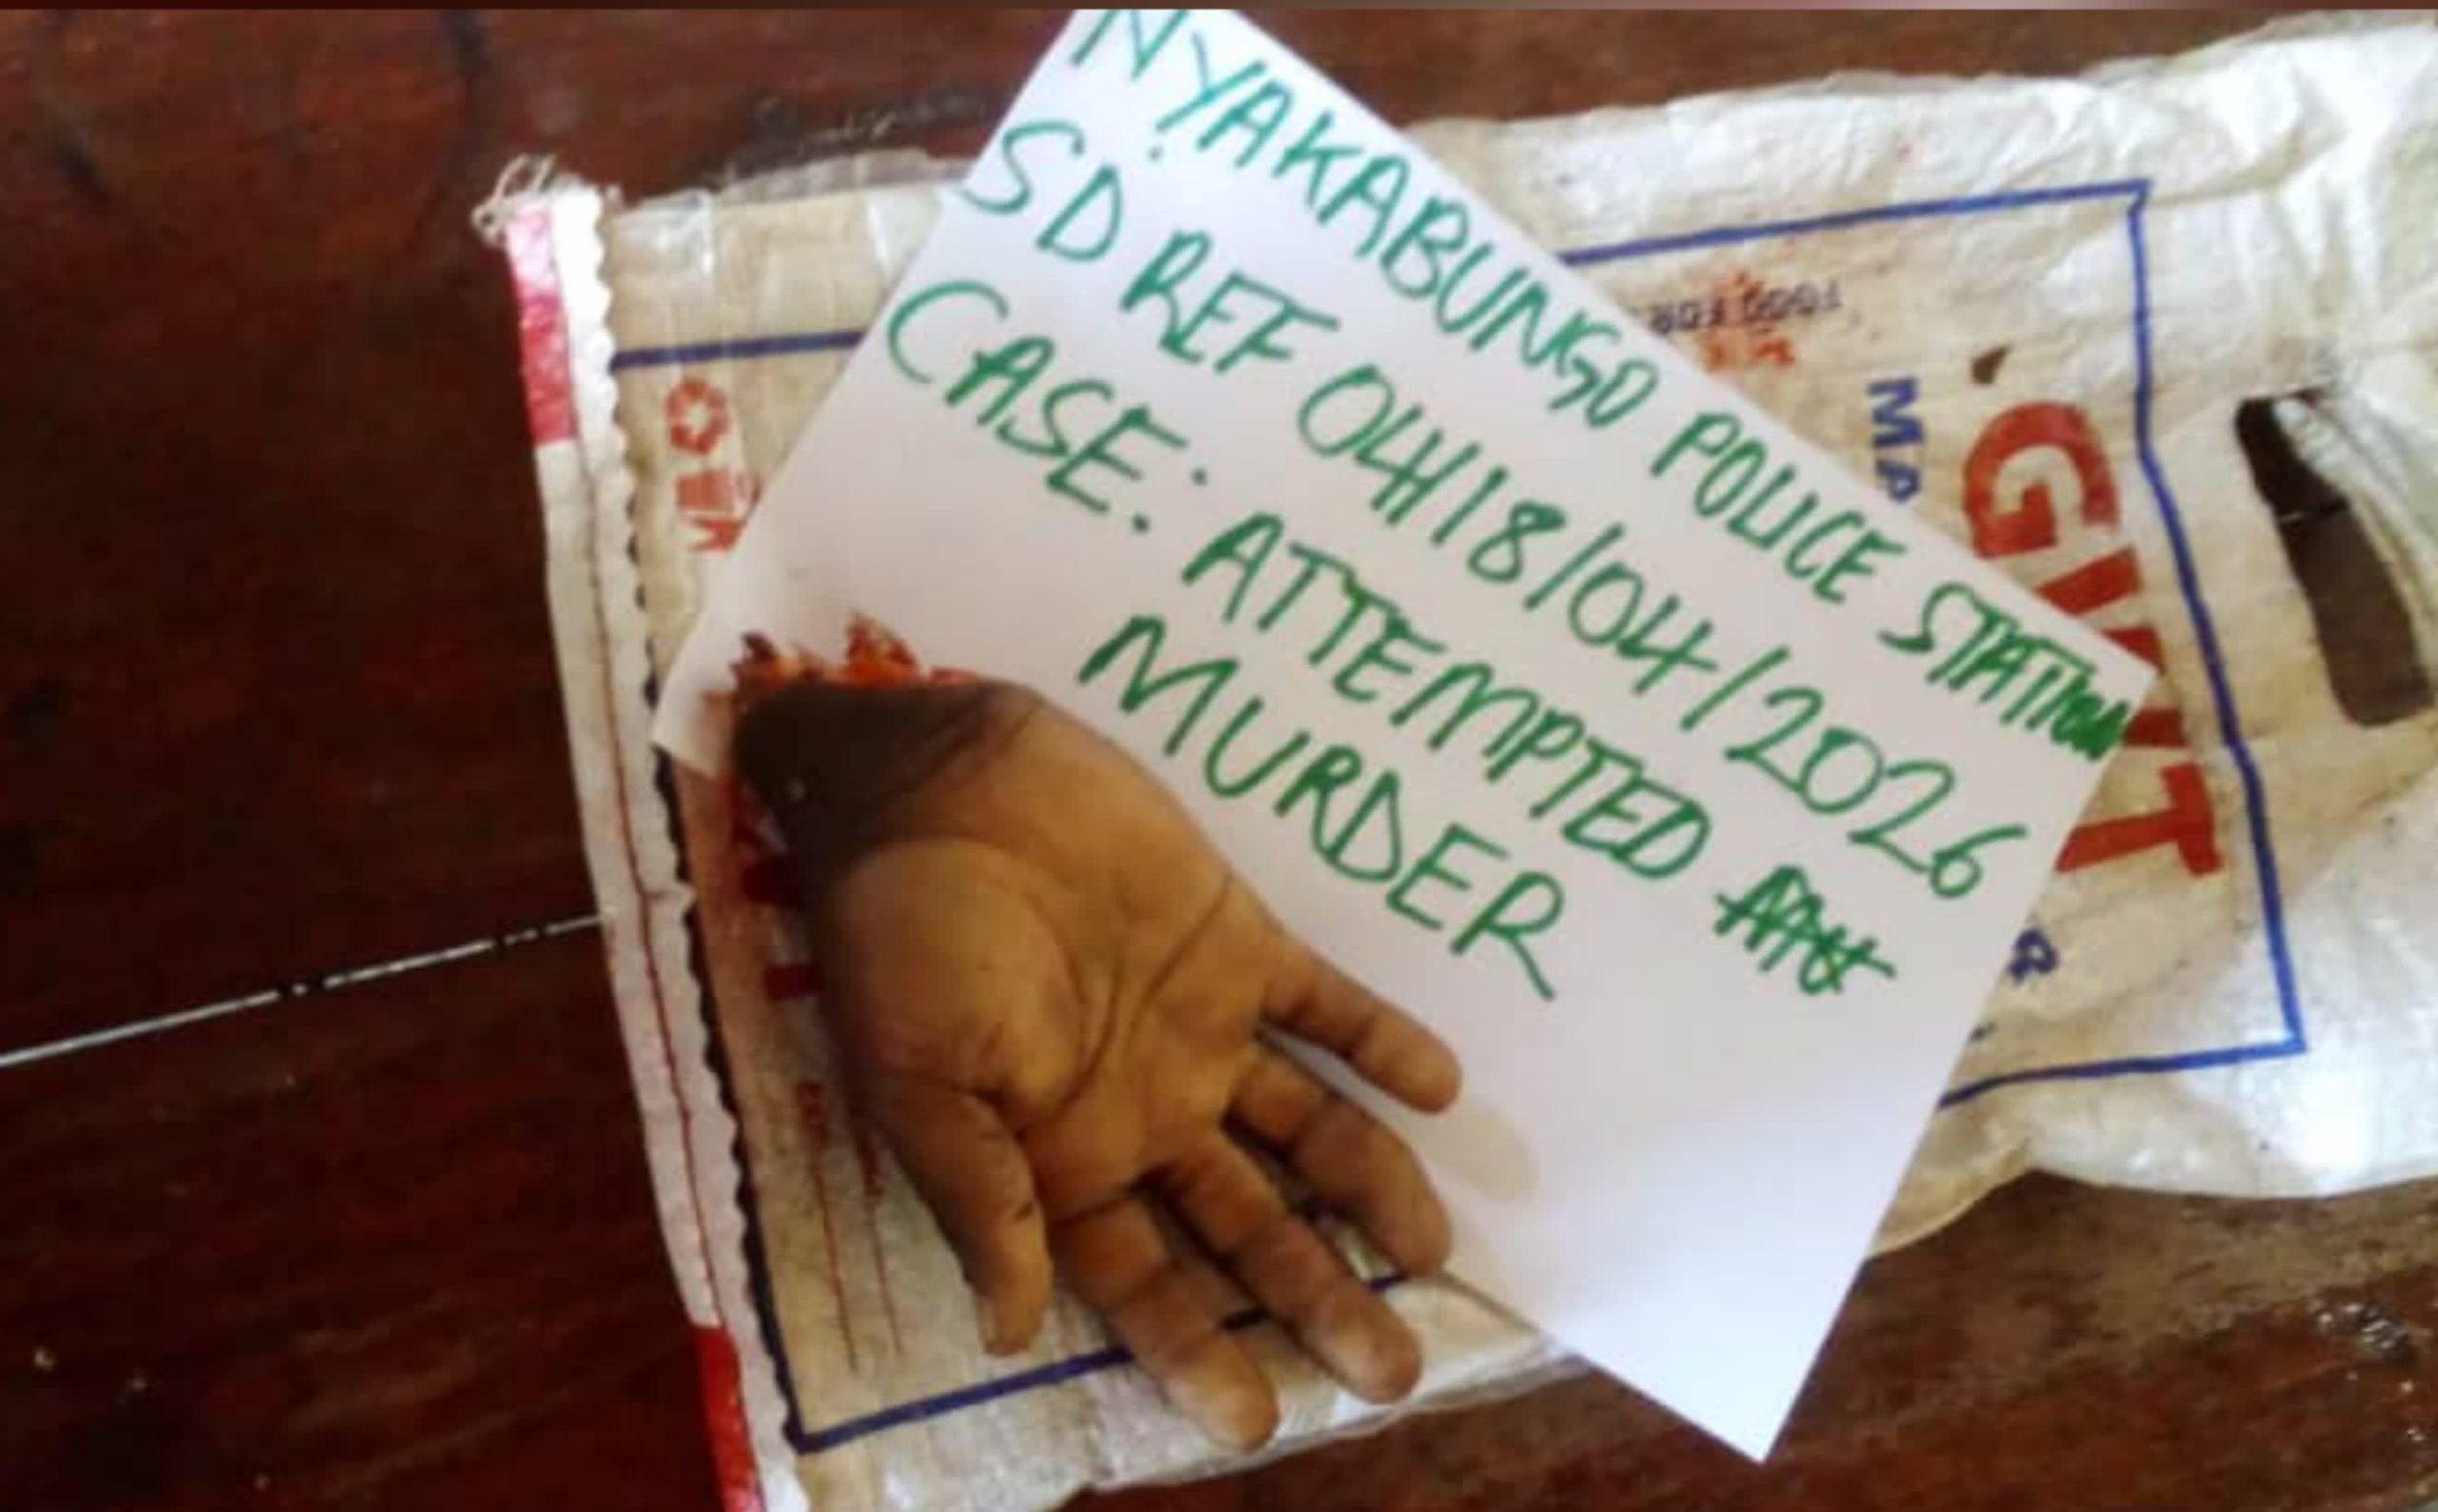 NYAKABUNGO POLICE STATION
SD REF 04/18/04/2026
CASE: ATTEMPTED
MURDER
GIANT
FOR FOOD